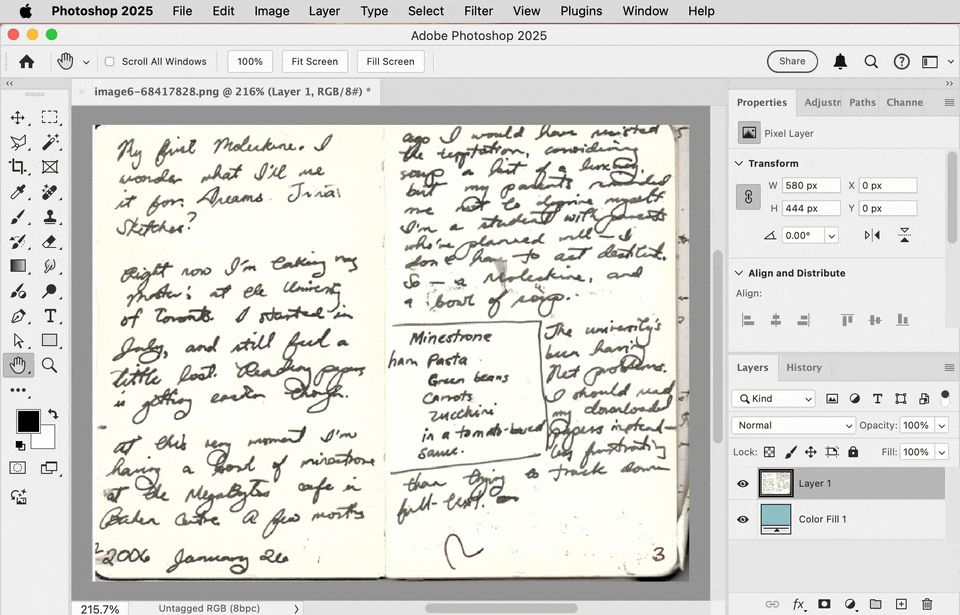 Photoshop 2025 File Edit Image Layer Type Select Filter View Plugins Window Help
Adobe Photoshop 2025
Scroll All Windows 100% Fit Screen Fill Screen Share
image6-68417828.png @ 216% (Layer 1, RGB/8#) *
My first Moleskine. I
wonder what I'll use
it for. Dreams. Trivia
Sketches?
Right now I'm taking my
Master's at the University
of Toronto. I started in
July, and still feel a
little lost. Reading papers
is getting easier though.
at this very moment I'm
having a bowl of minestrone
at the MegaBytes cafe in
Bahen Centre A few months
2
2006 January 26
ago I would have resisted
the temptation, considering
soup a bit of a luxury.
but my parents reminded
me not to deprive myself.
I'm a student with parents
who've planned well - I
don't have to act destitute.
So - a Moleskine, and
a bowl of soup..
Minestrone
ham Pasta
Green beans
Carrots
Zucchini
in a tomato-based
sauce.
The university's
been having
Net problems.
I should read
my downloaded
papers instead -
less frustrating
than trying to track down
full-text.
3
Properties Adjustr Paths Channe
Pixel Layer
Transform
W 580 px X 0 px
H 444 px Y 0 px
0.00°
Align and Distribute
Align:
Layers History
Kind
Normal Opacity: 100%
Lock: Fill: 100%
Layer 1
Color Fill 1
fx
215.7% Untagged RGB (8bpc)